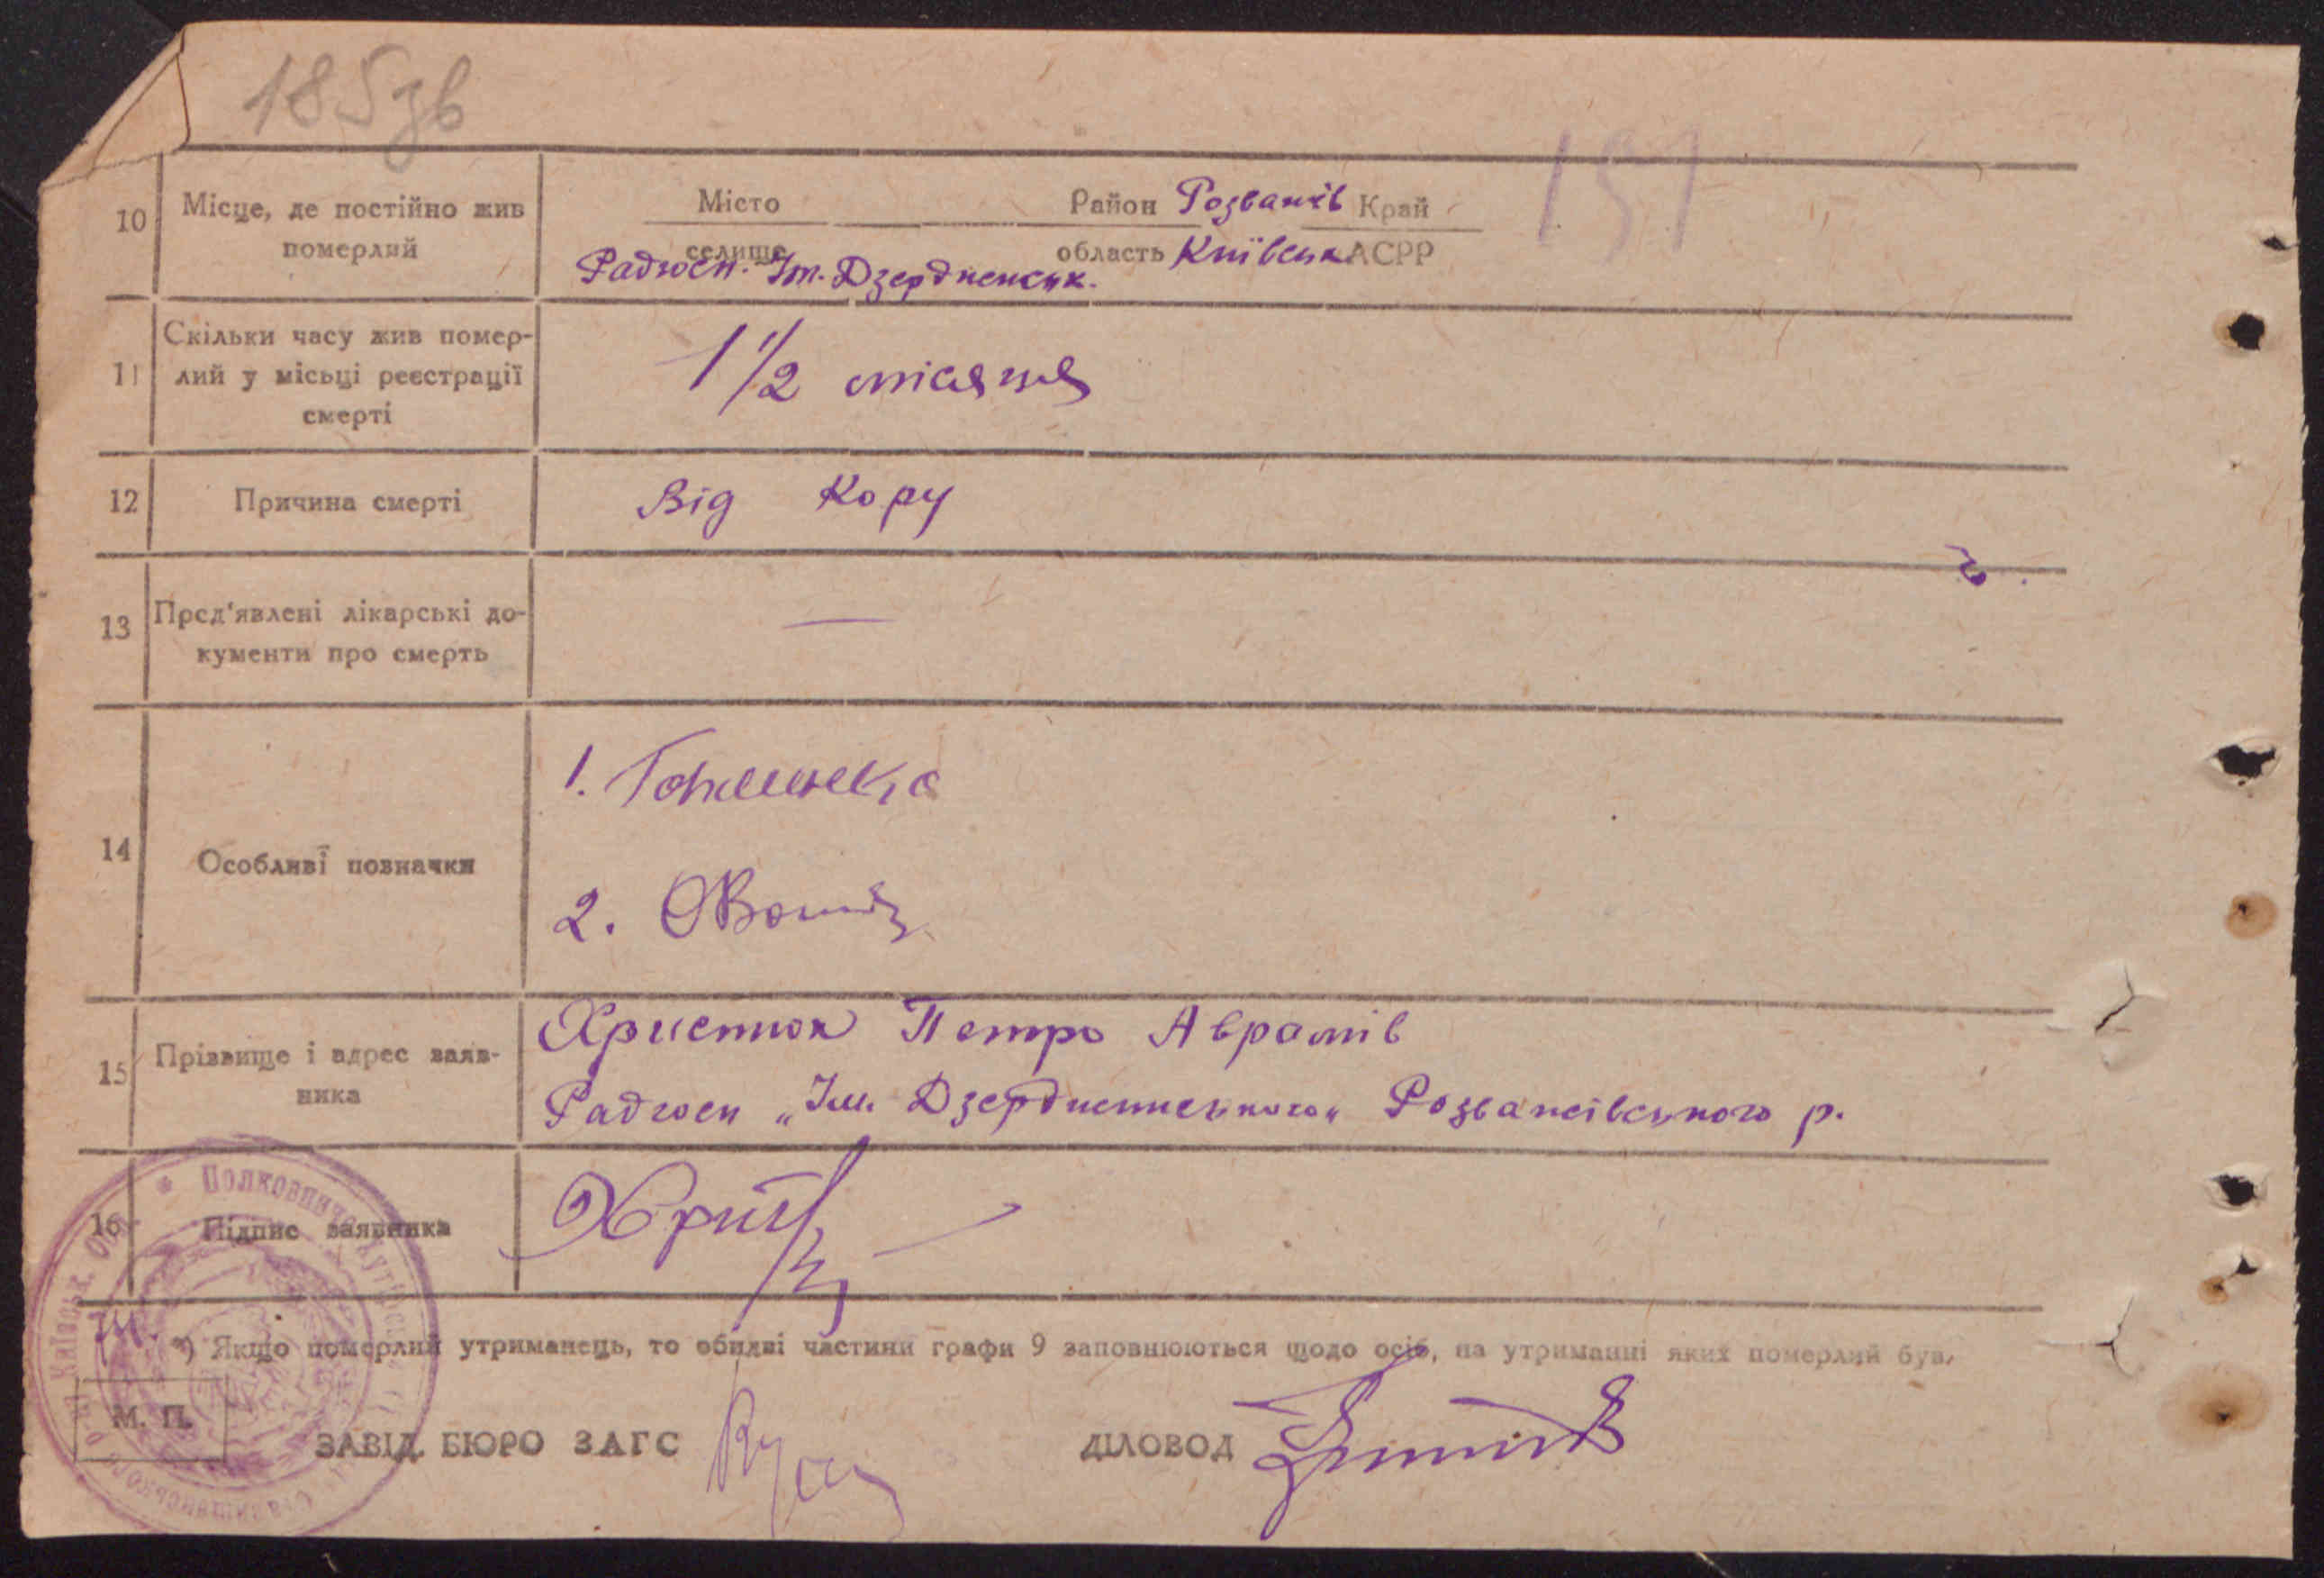 185зв
151
10 Місце, де постійно жив померлий
Місто Район Розважів Край
селище область Київська АСРР
Радгосп. Ім. Дзержинськ.
11 Скільки часу жив помер-
лий у місьці реєстрації
смерті
1 1/2 місяця
12 Причина смерті
Від Кору
13 Пред'явлені лікарські до-
кументи про смерть
—
14 Особливі позначки
1.
2.
15 Прізвище і адрес заяв-
ника
Христюк Петро Аврамів
Радгосп „Ім. Дзержинського„ Розважівського р.
16 Підпис заявника
*) Якщо померлий утриманець, то обидві частини графи 9 заповнюються щодо осіб, на утриманні яких померлий був.
М. П.
ЗАВІД. БЮРО ЗАГС ДІЛОВОД